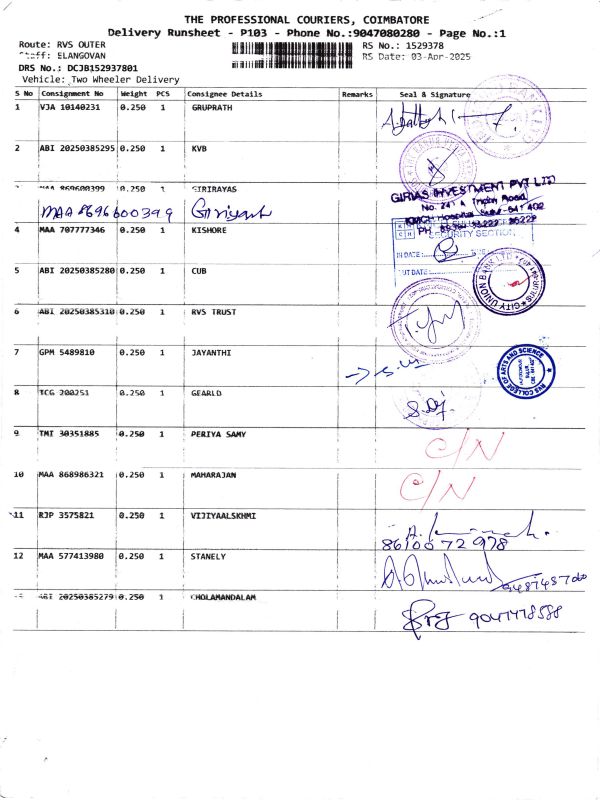 THE PROFESSIONAL COURIERS, COIMBATORE
Delivery Runsheet - P103 - Phone No.:9047080280 - Page No.:1
Route: RVS OUTER RS No.: 1529378
Staff: ELANGOVAN RS Date: 03-Apr-2025
DRS No.: DCJB152937801
Vehicle: Two Wheeler Delivery
S No Consignment No Weight PCS Consignee Details Remarks Seal & Signature
1 VJA 10140231 0.250 1 GRUPRATH
2 ABI 20250385295 0.250 1 KVB
MAA 869600399 0.250 1 GIRIRAYAS
MAA 8696600399 Giriyash
GIRIAS INVESTMENT PVT LTD
No. 241 A Trichy Road
KMCH Hospital
4 MAA 707777346 0.250 1 KISHORE
SECURITY SECTION
IN DATE:
OUT DATE:
5 ABI 20250385280 0.250 1 CUB
CITY UNION BANK LTD
6 ABI 20250385310 0.250 1 RVS TRUST
7 GPM 5489810 0.250 1 JAYANTHI
RVS COLLEGE OF ARTS AND SCIENCE
8 TCG 200251 0.250 1 GEARLD
9 TMI 30351885 0.250 1 PERIYA SAMY
C/N
10 MAA 868986321 0.250 1 MAHARAJAN
C/N
11 RJP 3575821 0.250 1 VIJIYAALSKHMI
8610072978
12 MAA 577413980 0.250 1 STANELY
ABI 20250385279 0.250 1 CHOLAMANDALAM